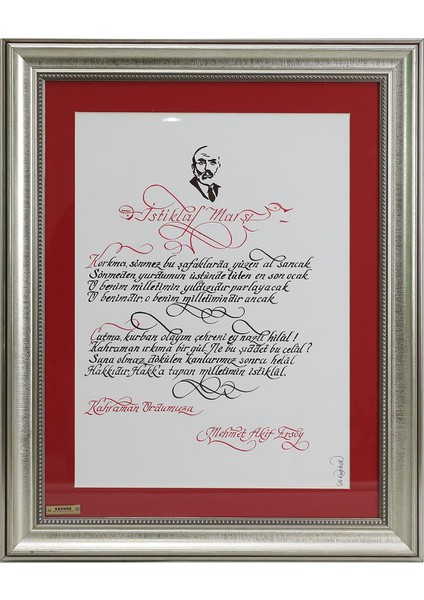 İstiklâl Marşı
Korkma, sönmez bu şafaklarda yüzen al sancak
Sönmeden yurdumun üstünde tüten en son ocak
O benim milletimin yıldızıdır parlayacak
O benimdir, o benim milletimindir ancak
Çatma, kurban olayım çehreni ey nazlı hilâl!
Kahraman ırkıma bir gül. Ne bu şiddet bu celâl?
Sana olmaz dökülen kanlarımız sonra helâl
Hakkıdır, Hakk'a tapan milletimin istiklâl.
Kahraman Ordumuza
Mehmet Akif Ersoy